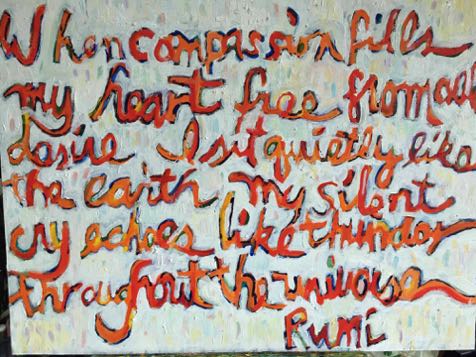 When compassion fills
my heart free from all
desire I sit quietly like
the earth my silent
cry echoes like thunder
throughout the universe
Rumi